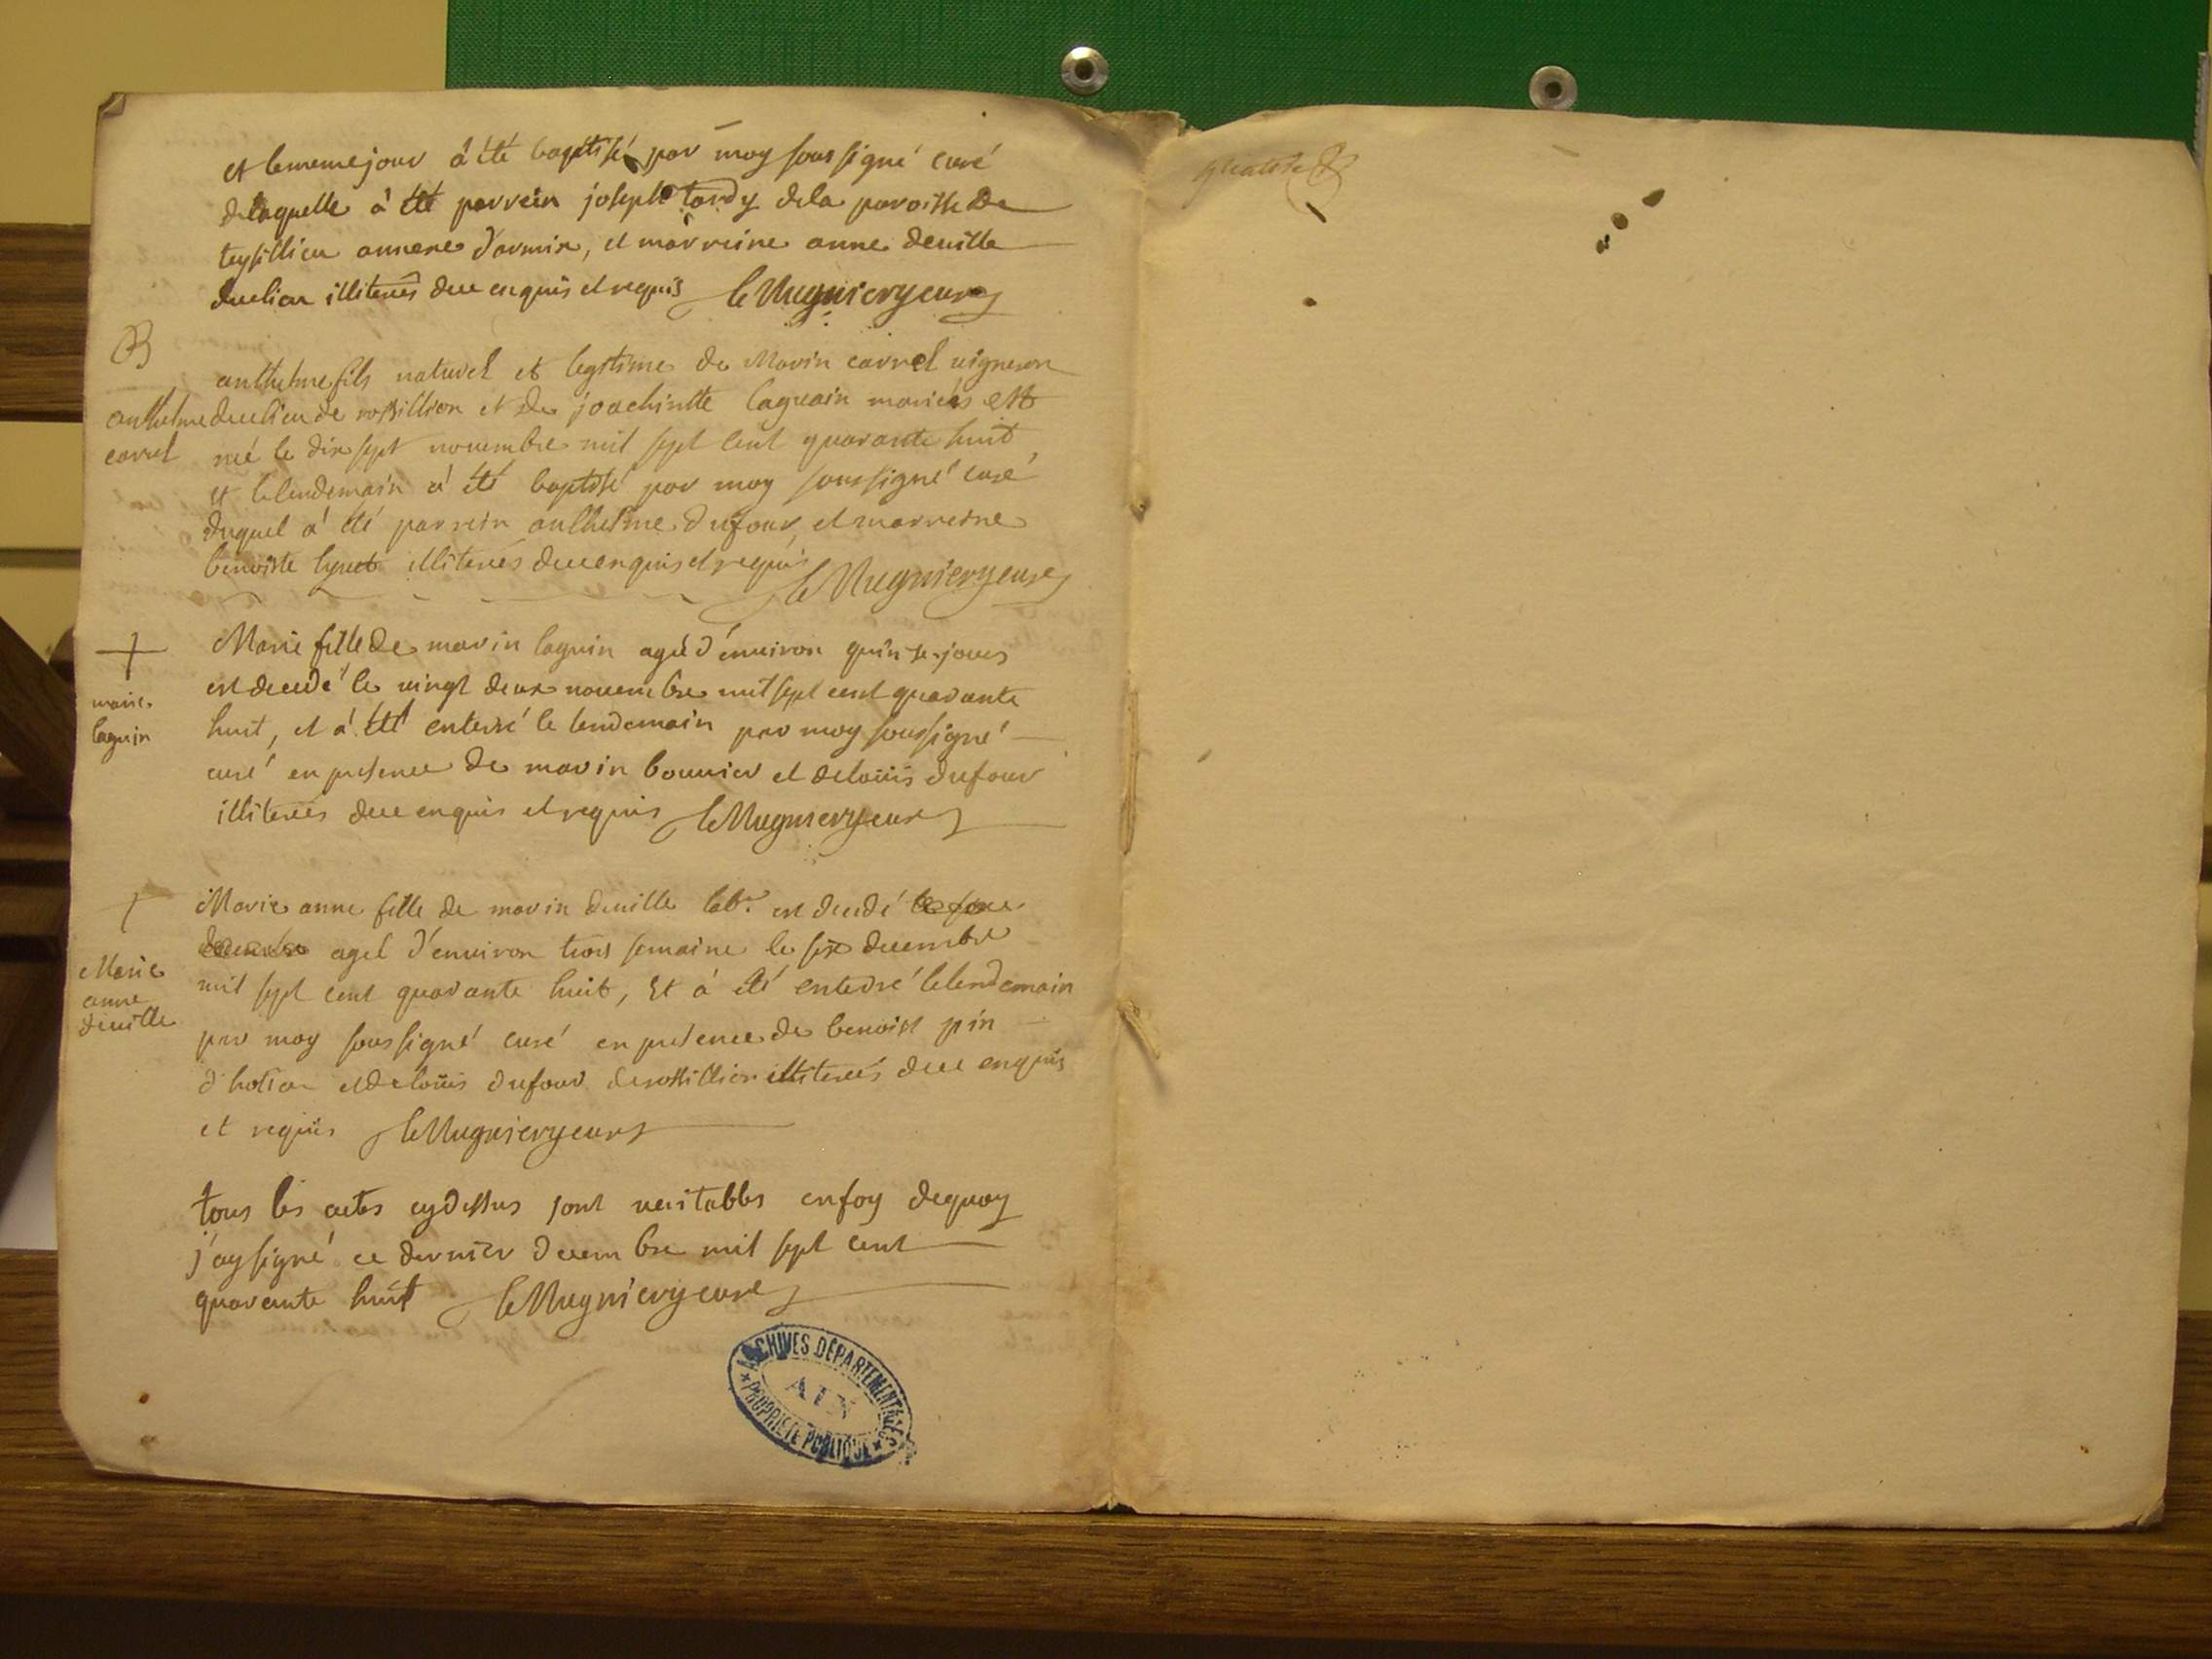 et le meme jour à été baptisé par moy soussigné curé
de laquelle à été parrein joseph tardy dela paroisse de
teysillieu annexe d'armix, et marreine anne deville
du lieu illiterés de ce enquis et requis leMugniery curé
B
anthelme fils naturel et legitime de Marin carrel vigneron
anthelme du lieu de rossillion et de joachintte laguain mariés est
carrel né le dix sept novembre mil sept cent quarante huit
et le lendemain a été baptisé par moy soussigné curé
duquel a été parrein anthelme dufour, et marreine
benoiste illiterés de ce enquis et requis
leMugniery curé
Marie fille de marin laguin agé d'environ quinse jours
est decedé le vingt deux novembre mil sept cent quarante
marie
laguin
huit, et a été enterré le lendemain par moy soussigné
curé en presence de marin bouvier et de loüis dufour
illiterés de ce enquis et requis leMugniery curé
Marie anne fille de marin deville labr. est decedé
agée d'environ trois semaine le six decembre
Marie
anne
deville
mil sept cent quarante huit, Et à été enterré le lendemain
par moy soussigné curé en presence de benoist pin
d'hotion et de loüis dufour de rossillion illiterés de ce enquis
et requis leMugniery curé
tous les actes cydessus sont veritables en foy dequoy
j'ay signé ce dernier decembre mil sept cent
quarante huit leMugniery curé
ARCHIVES DÉPARTEMENTALES
AIN
PROPRIÉTÉ PUBLIQUE